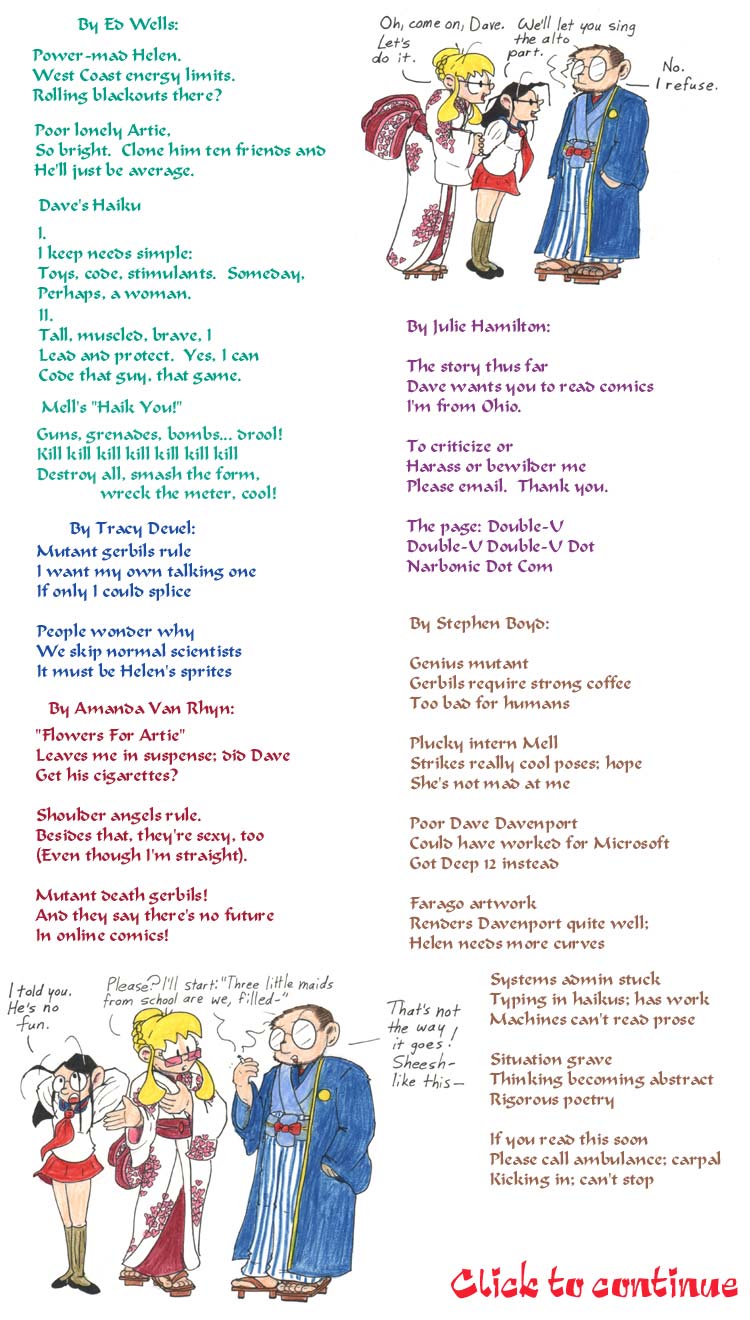 By Ed Wells:
Power-mad Helen.
West Coast energy limits.
Rolling blackouts there?
Poor lonely Artie,
So bright. Clone him ten friends and
He'll just be average.
Dave's Haiku
I.
I keep needs simple:
Toys, code, stimulants. Someday,
Perhaps, a woman.
II.
Tall, muscled, brave, I
Lead and protect. Yes, I can
Code that guy, that game.
Mell's "Haik You!"
Guns, grenades, bombs... drool!
Kill kill kill kill kill kill kill
Destroy all, smash the form,
wreck the meter, cool!
By Tracy Deuel:
Mutant gerbils rule
I want my own talking one
If only I could splice
People wonder why
We skip normal scientists
It must be Helen's sprites
By Amanda Van Rhyn:
"Flowers For Artie"
Leaves me in suspense; did Dave
Get his cigarettes?
Shoulder angels rule.
Besides that, they're sexy, too
(Even though I'm straight).
Mutant death gerbils!
And they say there's no future
In online comics!
Oh, come on, Dave.
Let's
do it.
We'll let you sing
the alto
part.
No.
I refuse.
By Julie Hamilton:
The story thus far
Dave wants you to read comics
I'm from Ohio.
To criticize or
Harass or bewilder me
Please email. Thank you.
The page: Double-U
Double-U Double-U Dot
Narbonic Dot Com
By Stephen Boyd:
Genius mutant
Gerbils require strong coffee
Too bad for humans
Plucky intern Mell
Strikes really cool poses; hope
She's not mad at me
Poor Dave Davenport
Could have worked for Microsoft
Got Deep 12 instead
Farago artwork
Renders Davenport quite well;
Helen needs more curves
Systems admin stuck
Typing in haikus; has work
Machines can't read prose
Situation grave
Thinking becoming abstract
Rigorous poetry
If you read this soon
Please call ambulance; carpal
Kicking in; can't stop
I told you.
He's no
fun.
Please? I'll start: "Three little maids
from school are we, filled-"
That's not
the way
it goes!
Sheesh-
like this-
Click to continue